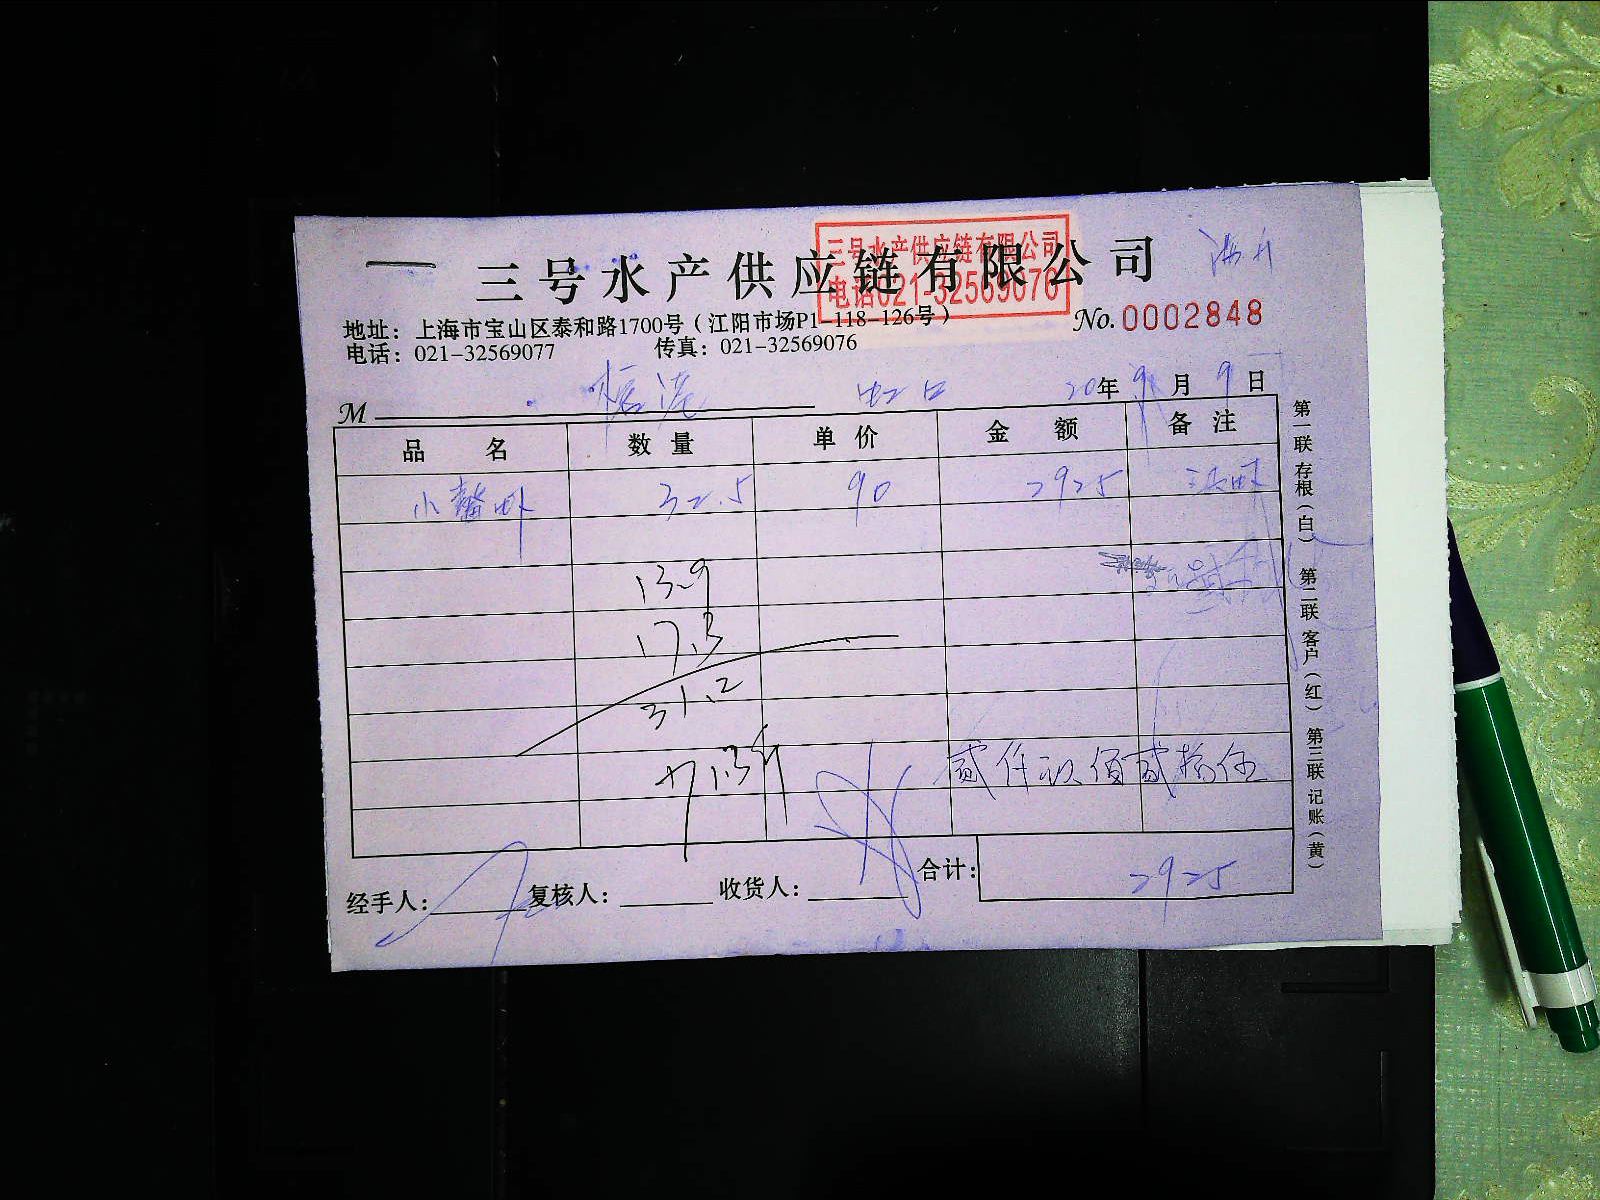 三号水产供应链有限公司
三号水产供应链有限公司
电话021-32569076
地址：上海市宝山区泰和路1700号（江阳市场P1-118-126号）
No.0002848
电话：021-32569077 传真：021-32569076
M 虹口 20年9月9日
品名 数量 单价 金额 备注
小龙虾 32.5 90 2925
13.9
17.3
31.2
71.3斤
贰仟玖佰贰拾伍
经手人： 复核人： 收货人： 合计： 2925
第一联 存根（白） 第二联 客户（红） 第三联 记账（黄）